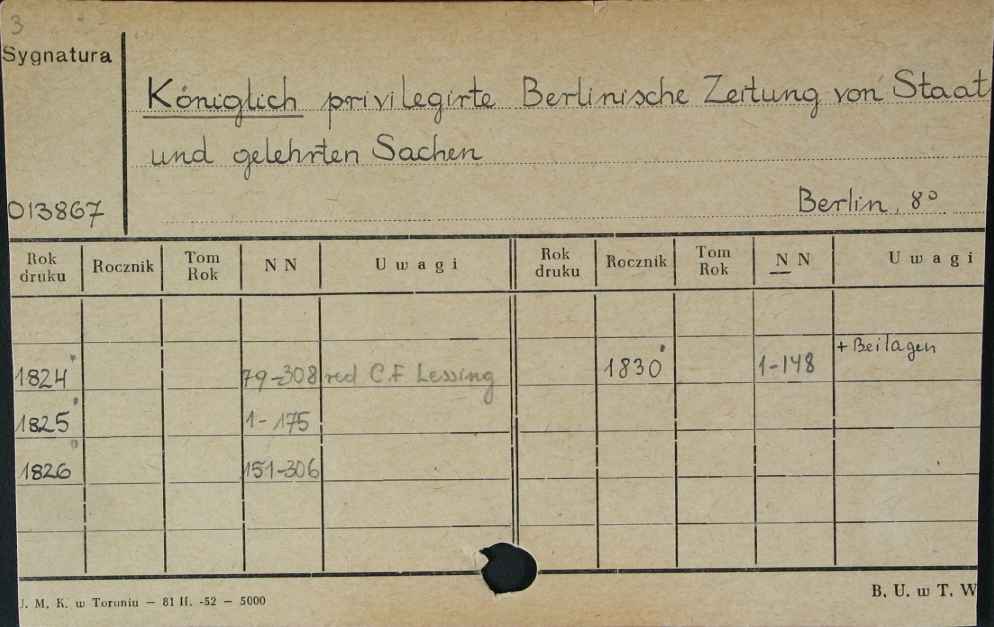 3
Sygnatura
Königlich privilegirte Berlinische Zeitung von Staat
und gelehrten Sachen
013867
Berlin, 8°
Rok druku Rocznik Tom Rok N N Uwagi Rok druku Rocznik Tom Rok N N Uwagi
1824 79-308 red C.F Lessing 1830 1-148 + Beilagen
1825 1-175
1826 151-306
J. M. K. w Toruniu — 81 II. -52 — 5000
B. U. w T. W